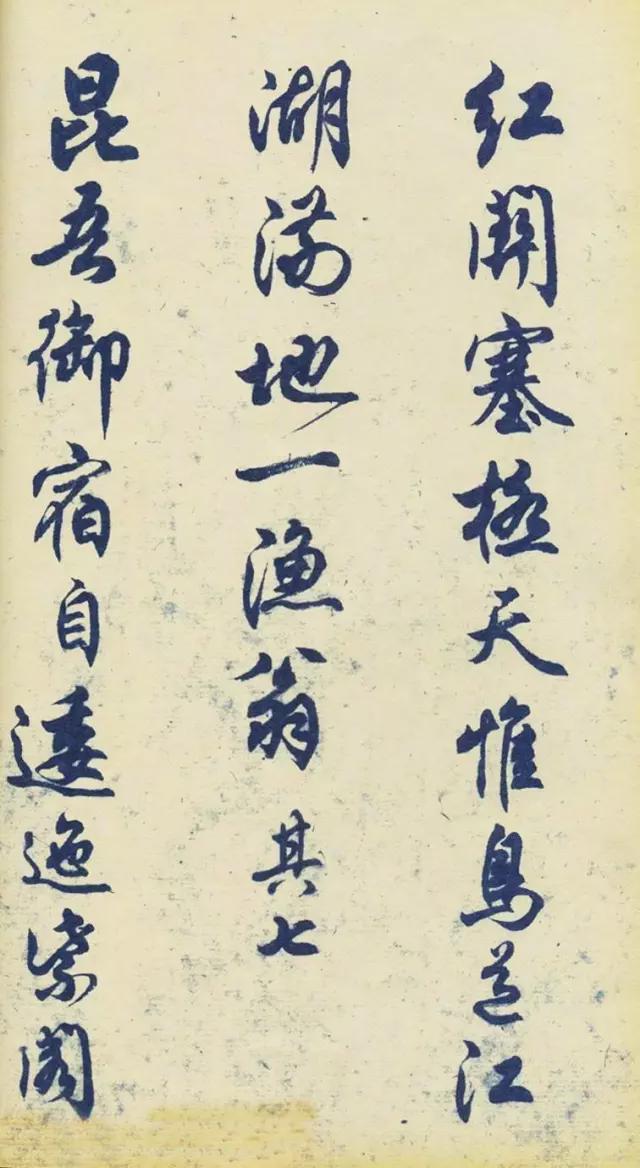 红關塞極天惟鳥道江
湖滿地一漁翁其七
昆吾御宿自逶迤紫閣